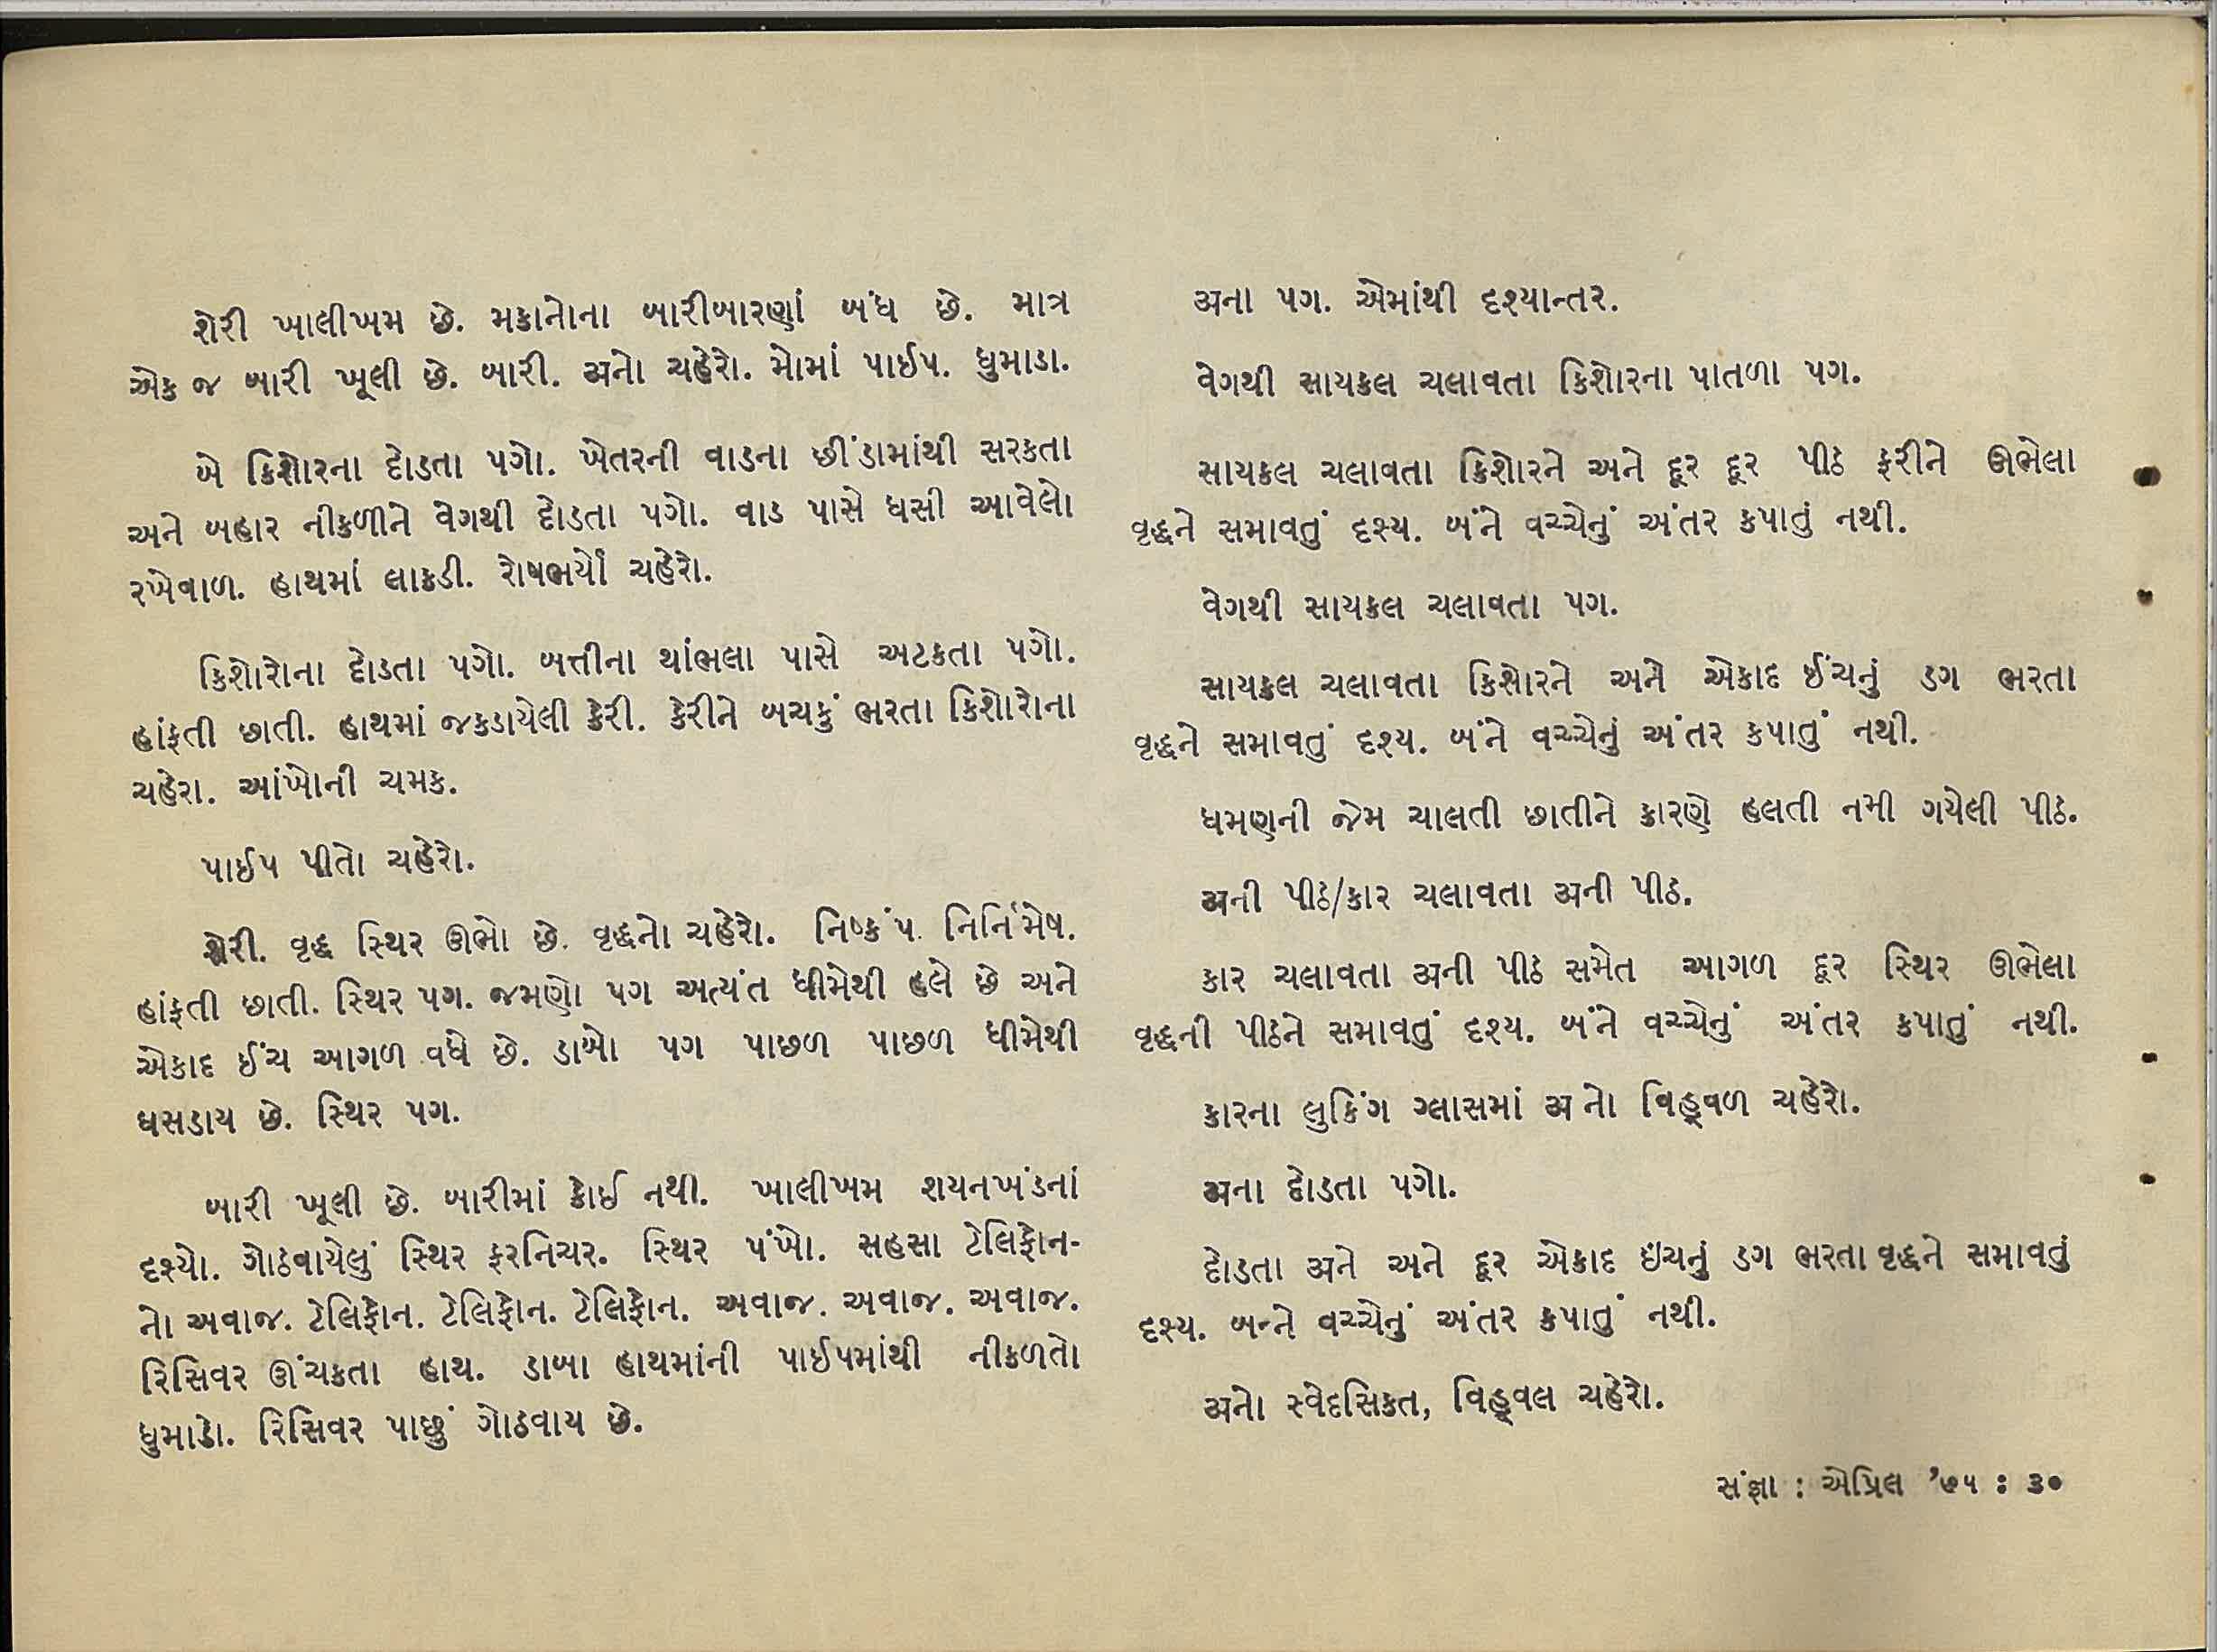 શેરી ખાલીખમ છે. મકાનોના બારીબારણાં બંધ છે. માત્ર
એક જ બારી ખૂલી છે. બારી. अનો ચહેરો. મોમાં પાઈપ. ધુમાડા.
બે કિશોરના દોડતા પગો. ખેતરની વાડના છીંડામાંથી સરકતા
અને બહાર નીકળીને વેગથી દોડતા પગો. વાડ પાસે ધસી આવેલો
રખેવાળ. હાથમાં લાકડી. રોષભર્યો ચહેરો.
કિશોરોના દોડતા પગો. બત્તીના થાંભલા પાસે અટકતા પગો.
હાંફતી છાતી. હાથમાં જકડાયેલી કેરી. કેરીને બચકું ભરતા કિશોરોના
ચહેરા. આંખોની ચમક.
પાઈપ પીતો ચહેરો.
શેરી. વૃદ્ધ સ્થિર ઊભો છે. વૃદ્ધનો ચહેરો. નિષ્કંપ. નિર્નિમેષ.
હાંફતી છાતી. સ્થિર પગ. જમણો પગ અત્યંત ધીમેથી હલે છે અને
એકાદ ઈંચ આગળ વધે છે. ડાબો પગ પાછળ પાછળ ધીમેથી
ઘસડાય છે. સ્થિર પગ.
બારી ખૂલી છે. બારીમાં કોઈ નથી. ખાલીખમ શયનખંડનાં
દૃશ્યો. ગોઠવાયેલું સ્થિર ફરનિચર. સ્થિર પંખો. સહસા ટેલિફોન-
નો અવાજ. ટેલિફોન. ટેલિફોન. ટેલિફોન. અવાજ. અવાજ. અવાજ.
રિસિવર ઊંચકતા હાથ. ડાબા હાથમાંની પાઈપમાંથી નીકળતો
ધુમાડો. રિસિવર પાછું ગોઠવાય છે.
अના પગ. એમાંથી દૃશ્યાન્તર.
વેગથી સાયકલ ચલાવતા કિશોરના પાતળા પગ.
સાયકલ ચલાવતા કિશોરને અને દૂર દૂર પીઠ ફરીને ઊભેલા
વૃદ્ધને સમાવતું દૃશ્ય. બંને વચ્ચેનું અંતર કપાતું નથી.
વેગથી સાયકલ ચલાવતા પગ.
સાયકલ ચલાવતા કિશોરને અને એકાદ ઈંચનું ડગ ભરતા
વૃદ્ધને સમાવતું દૃશ્ય. બંને વચ્ચેનું અંતર કપાતું નથી.
ધમણની જેમ ચાલતી છાતીને કારણે હલતી નમી ગયેલી પીઠ.
अની પીઠ/કાર ચલાવતા अની પીઠ.
કાર ચલાવતા अની પીઠ સમેત આગળ દૂર સ્થિર ઊભેલા
વૃદ્ધની પીઠને સમાવતું દૃશ્ય. બંને વચ્ચેનું અંતર કપાતું નથી.
કારના લુકિંગ ગ્લાસમાં अનો વિહ્વળ ચહેરો.
अના દોડતા પગો.
દોડતા अને અને દૂર એકાદ ઇંચનું ડગ ભરતા વૃદ્ધને સમાવતું
દૃશ્ય. બન્ને વચ્ચેનું અંતર કપાતું નથી.
अનો સ્વેદસિકત, વિહ્વલ ચહેરો.
સંજ્ઞા : એપ્રિલ ’૭૫ : ૩૦